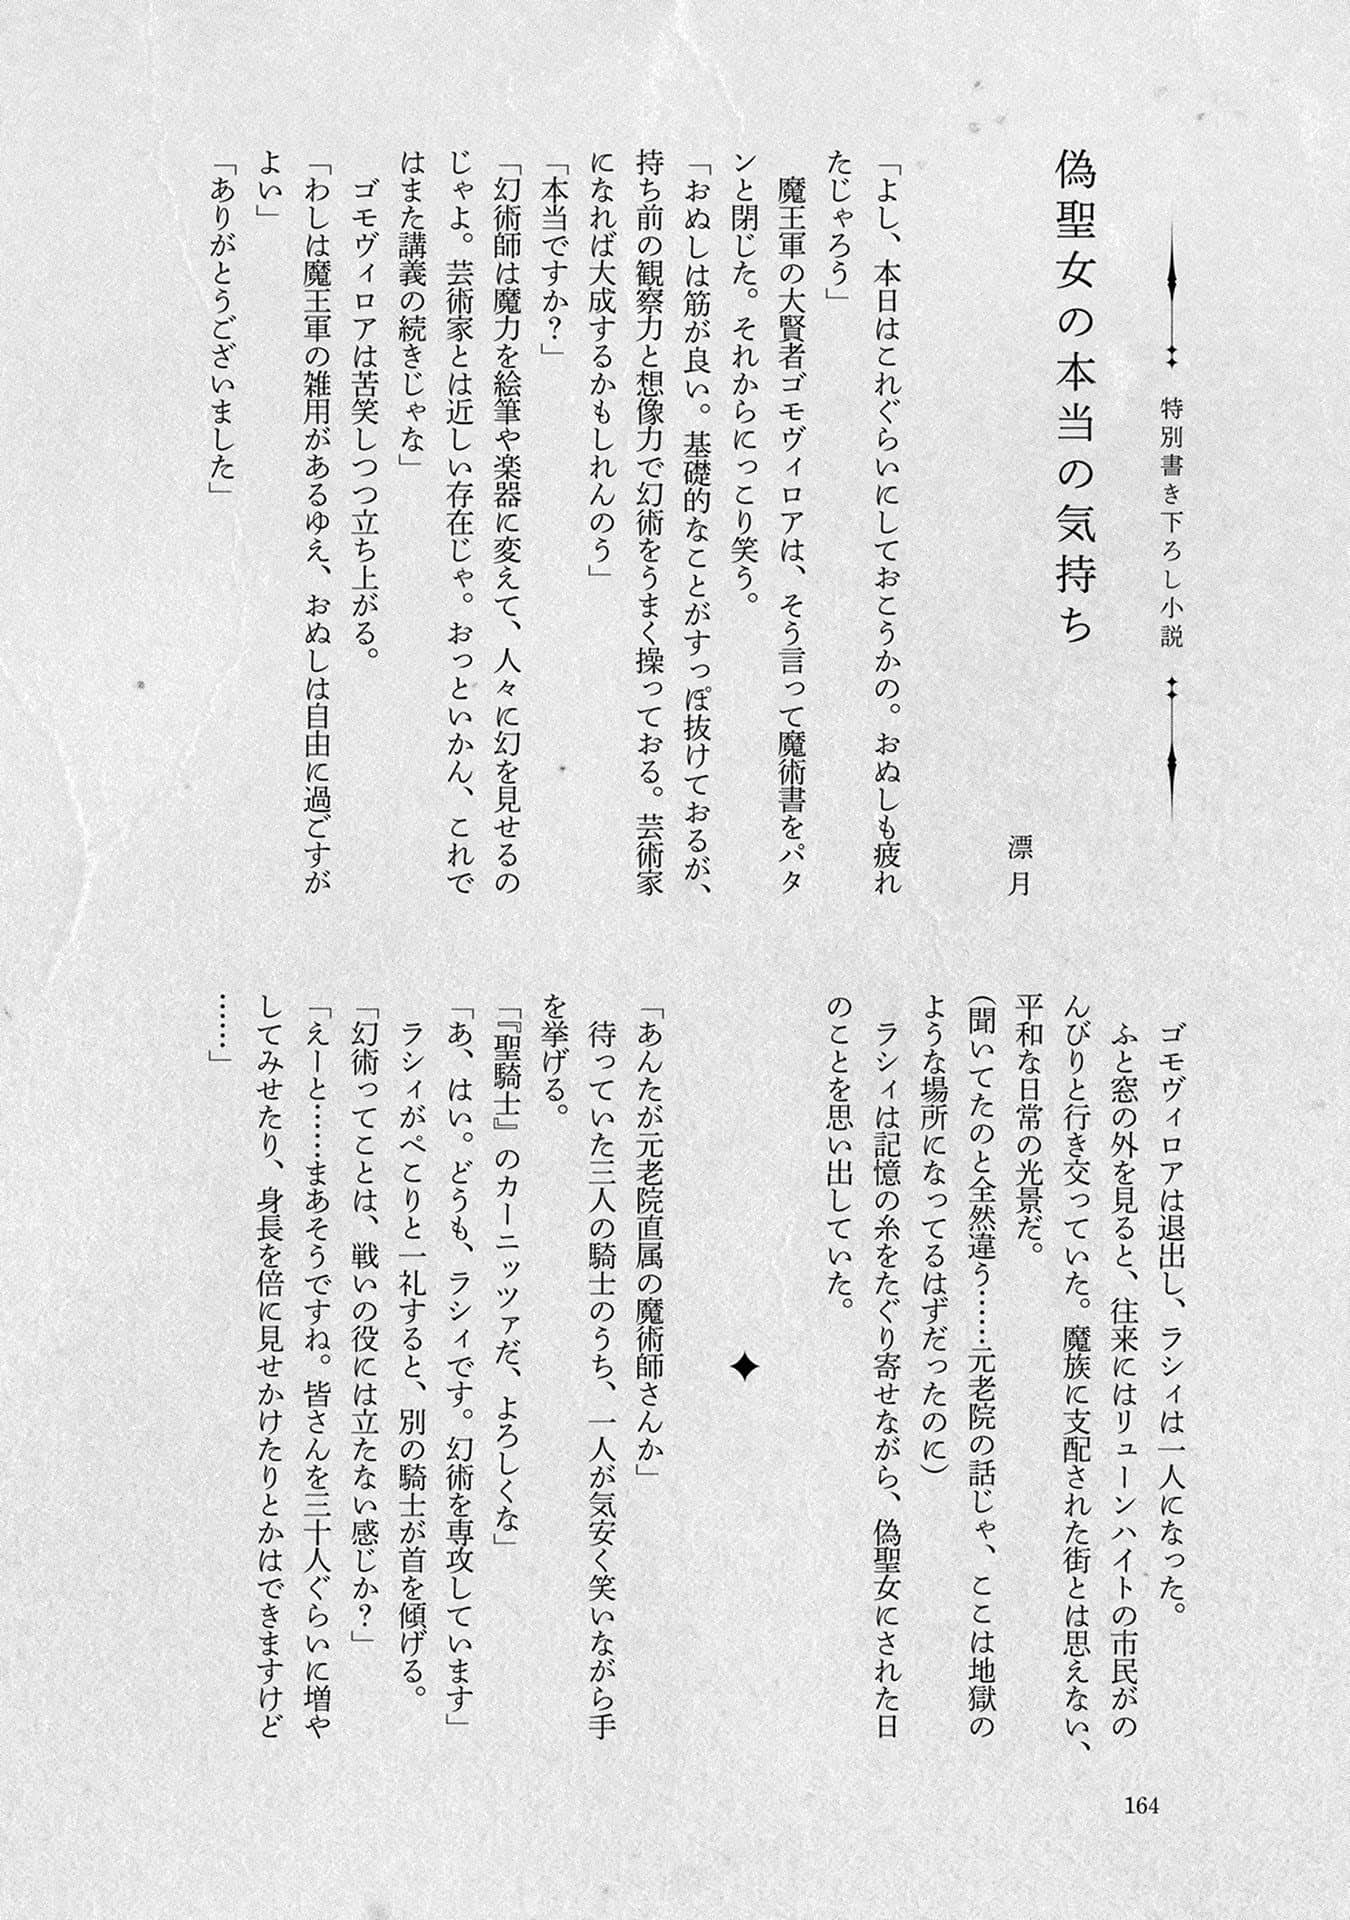 特別書き下ろし小説
偽聖女の本当の気持ち
漂月
「よし、本日はこれぐらいにしておこうかの。おぬしも疲れ
たじゃろう」
　魔王軍の大賢者ゴモヴィロアは、そう言って魔術書をパタ
ンと閉じた。それからにっこり笑う。
「おぬしは筋が良い。基礎的なことがすっぽ抜けておるが、
持ち前の観察力と想像力で幻術をうまく操っておる。芸術家
になれば大成するかもしれんのう」
「本当ですか？」
「幻術師は魔力を絵筆や楽器に変えて、人々に幻を見せるの
じゃよ。芸術家とは近しい存在じゃ。おっといかん、これで
はまた講義の続きじゃな」
　ゴモヴィロアは苦笑しつつ立ち上がる。
「わしは魔王軍の雑用があるゆえ、おぬしは自由に過ごすが
よい」
「ありがとうございました」
　ゴモヴィロアは退出し、ラシィは一人になった。
　ふと窓の外を見ると、往来にはリューンハイトの市民がの
んびりと行き交っていた。魔族に支配された街とは思えない、
平和な日常の光景だ。
（聞いてたのと全然違う……元老院の話じゃ、ここは地獄の
ような場所になってるはずだったのに）
　ラシィは記憶の糸をたぐり寄せながら、偽聖女にされた日
のことを思い出していた。
「あんたが元老院直属の魔術師さんか」
　待っていた三人の騎士のうち、一人が気安く笑いながら手
を挙げる。
「『聖騎士』のカーニッツァだ、よろしくな」
「あ、はい。どうも、ラシィです。幻術を専攻しています」
　ラシィがぺこりと一礼すると、別の騎士が首を傾げる。
「幻術ってことは、戦いの役には立たない感じか？」
「えーと……まあそうですね。皆さんを三十人ぐらいに増や
してみせたり、身長を倍に見せかけたりとかはできますけど
……」
164